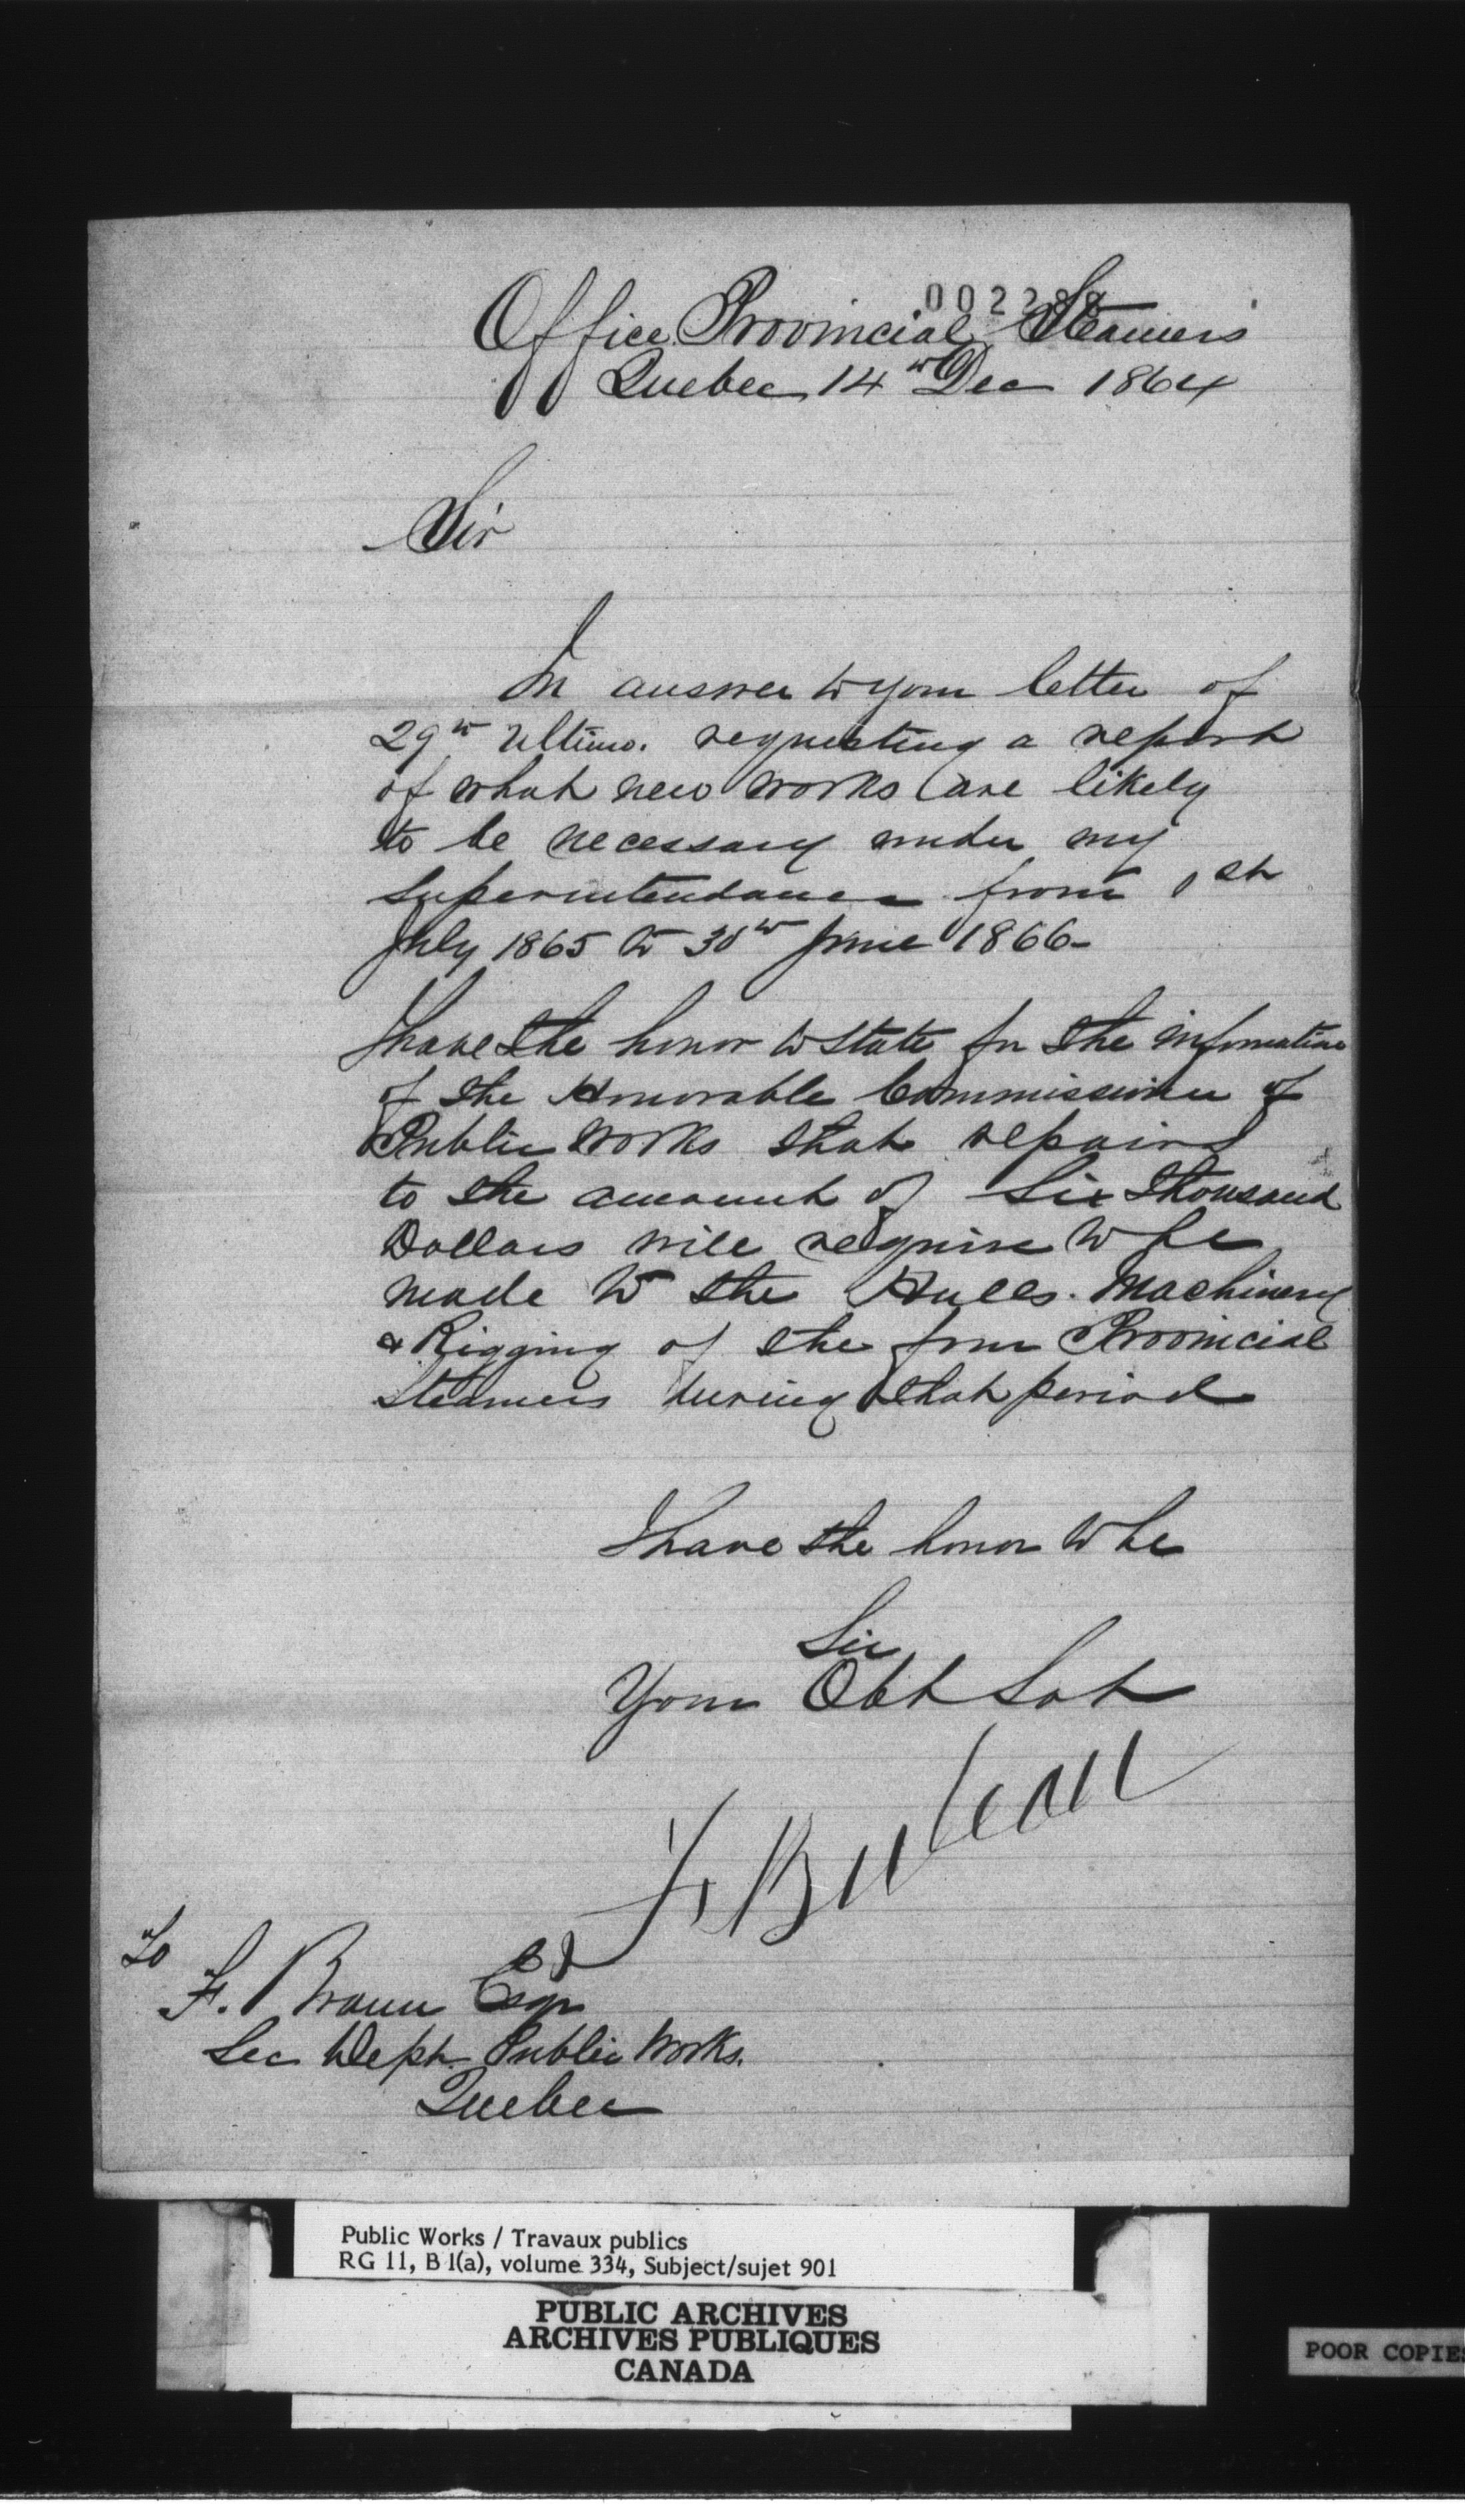 Office Provincial Steamers
Quebec 14th Dec 1864
Sir
In answer to your letter of
29th Ultimo. requesting a report
of what new works are likely
to be necessary under my
superintendance from 1st
July 1865 to 30th June 1866-
I have the honor to state for the information
of the Honorable Commissioner of
Public Works that repairs
to the amount of Six Thousand
Dollars will require to be
made to the Hulls. Machinery
& Rigging of the four Provincial
Steamers during that period
I have the honor to be
Sir
Your Obt Svt
To
F. Braun Esqr
Sec Dept. Public Works.
Quebec
Public Works / Travaux publics
RG 11, B 1(a), volume 334, Subject/sujet 901
PUBLIC ARCHIVES
ARCHIVES PUBLIQUES
CANADA
POOR COPIES